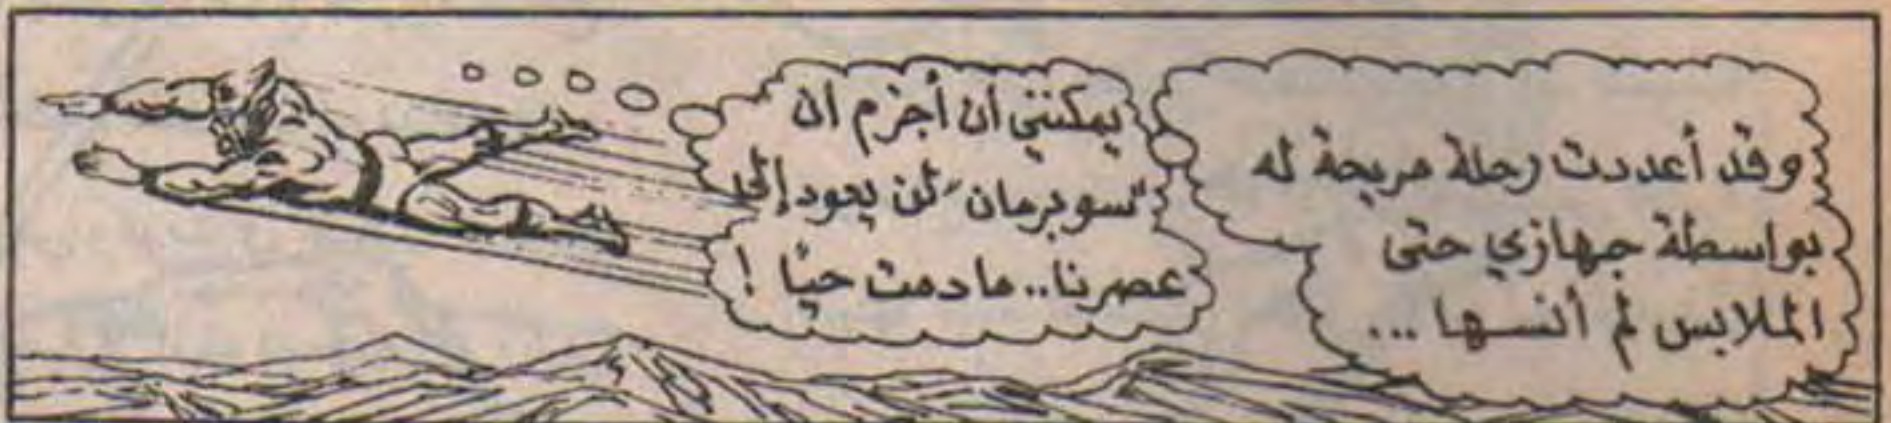 وقد أعددت رحلة مريحة له
بواسطة جهازي حتى
الملابس لم أنسها ...
يمكنني أن أجزم أن
"سوبرمان" لن يعود إلى
عصرنا.. ما دمت حيًا !